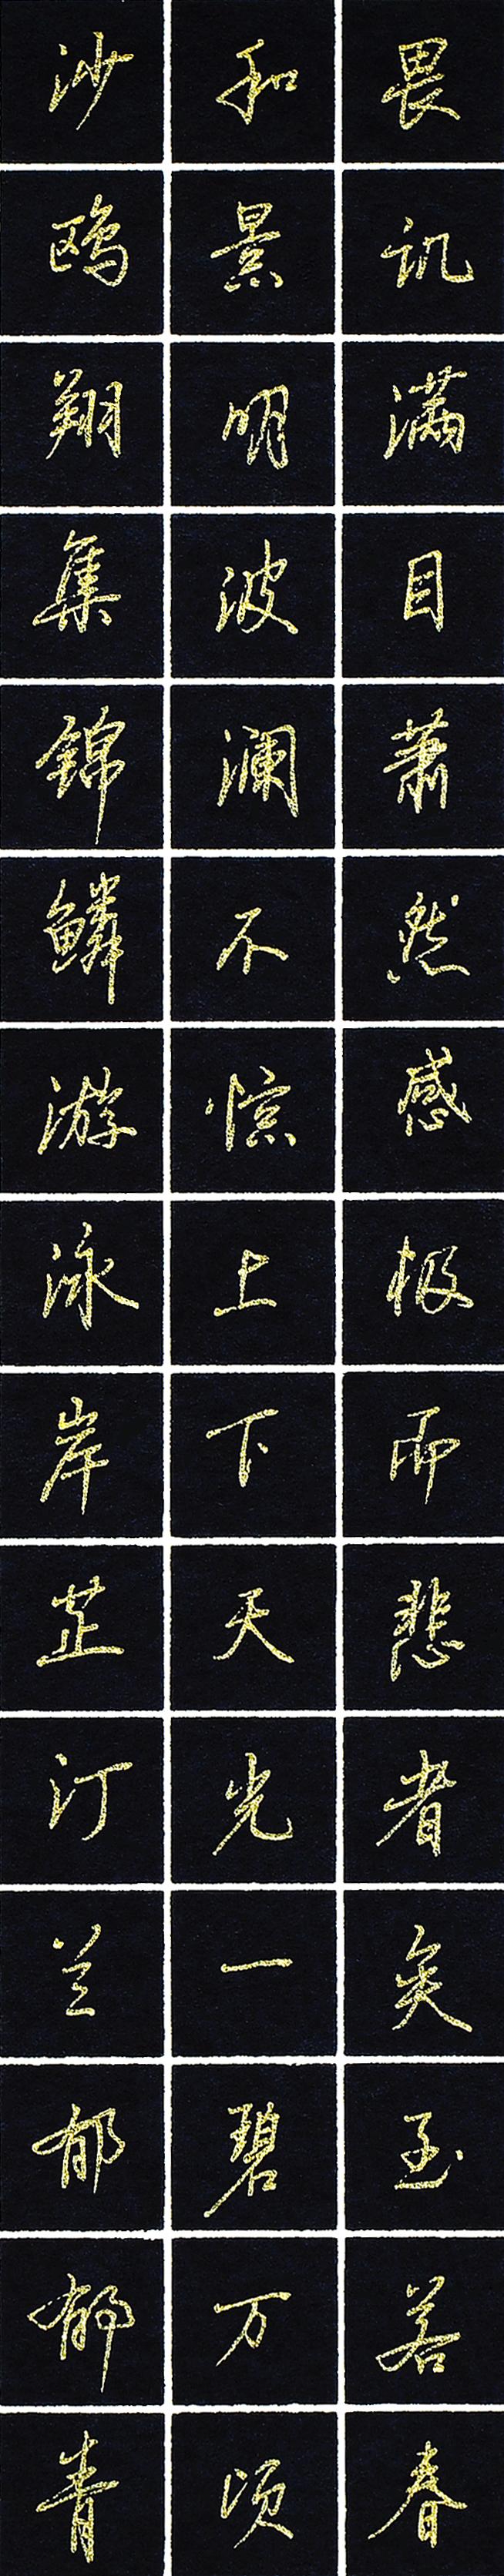 畏讥满目萧然感极而悲者矣至若春
和景明波澜不惊上下天光一碧万顷
沙鸥翔集锦鳞游泳岸芷汀兰郁郁青